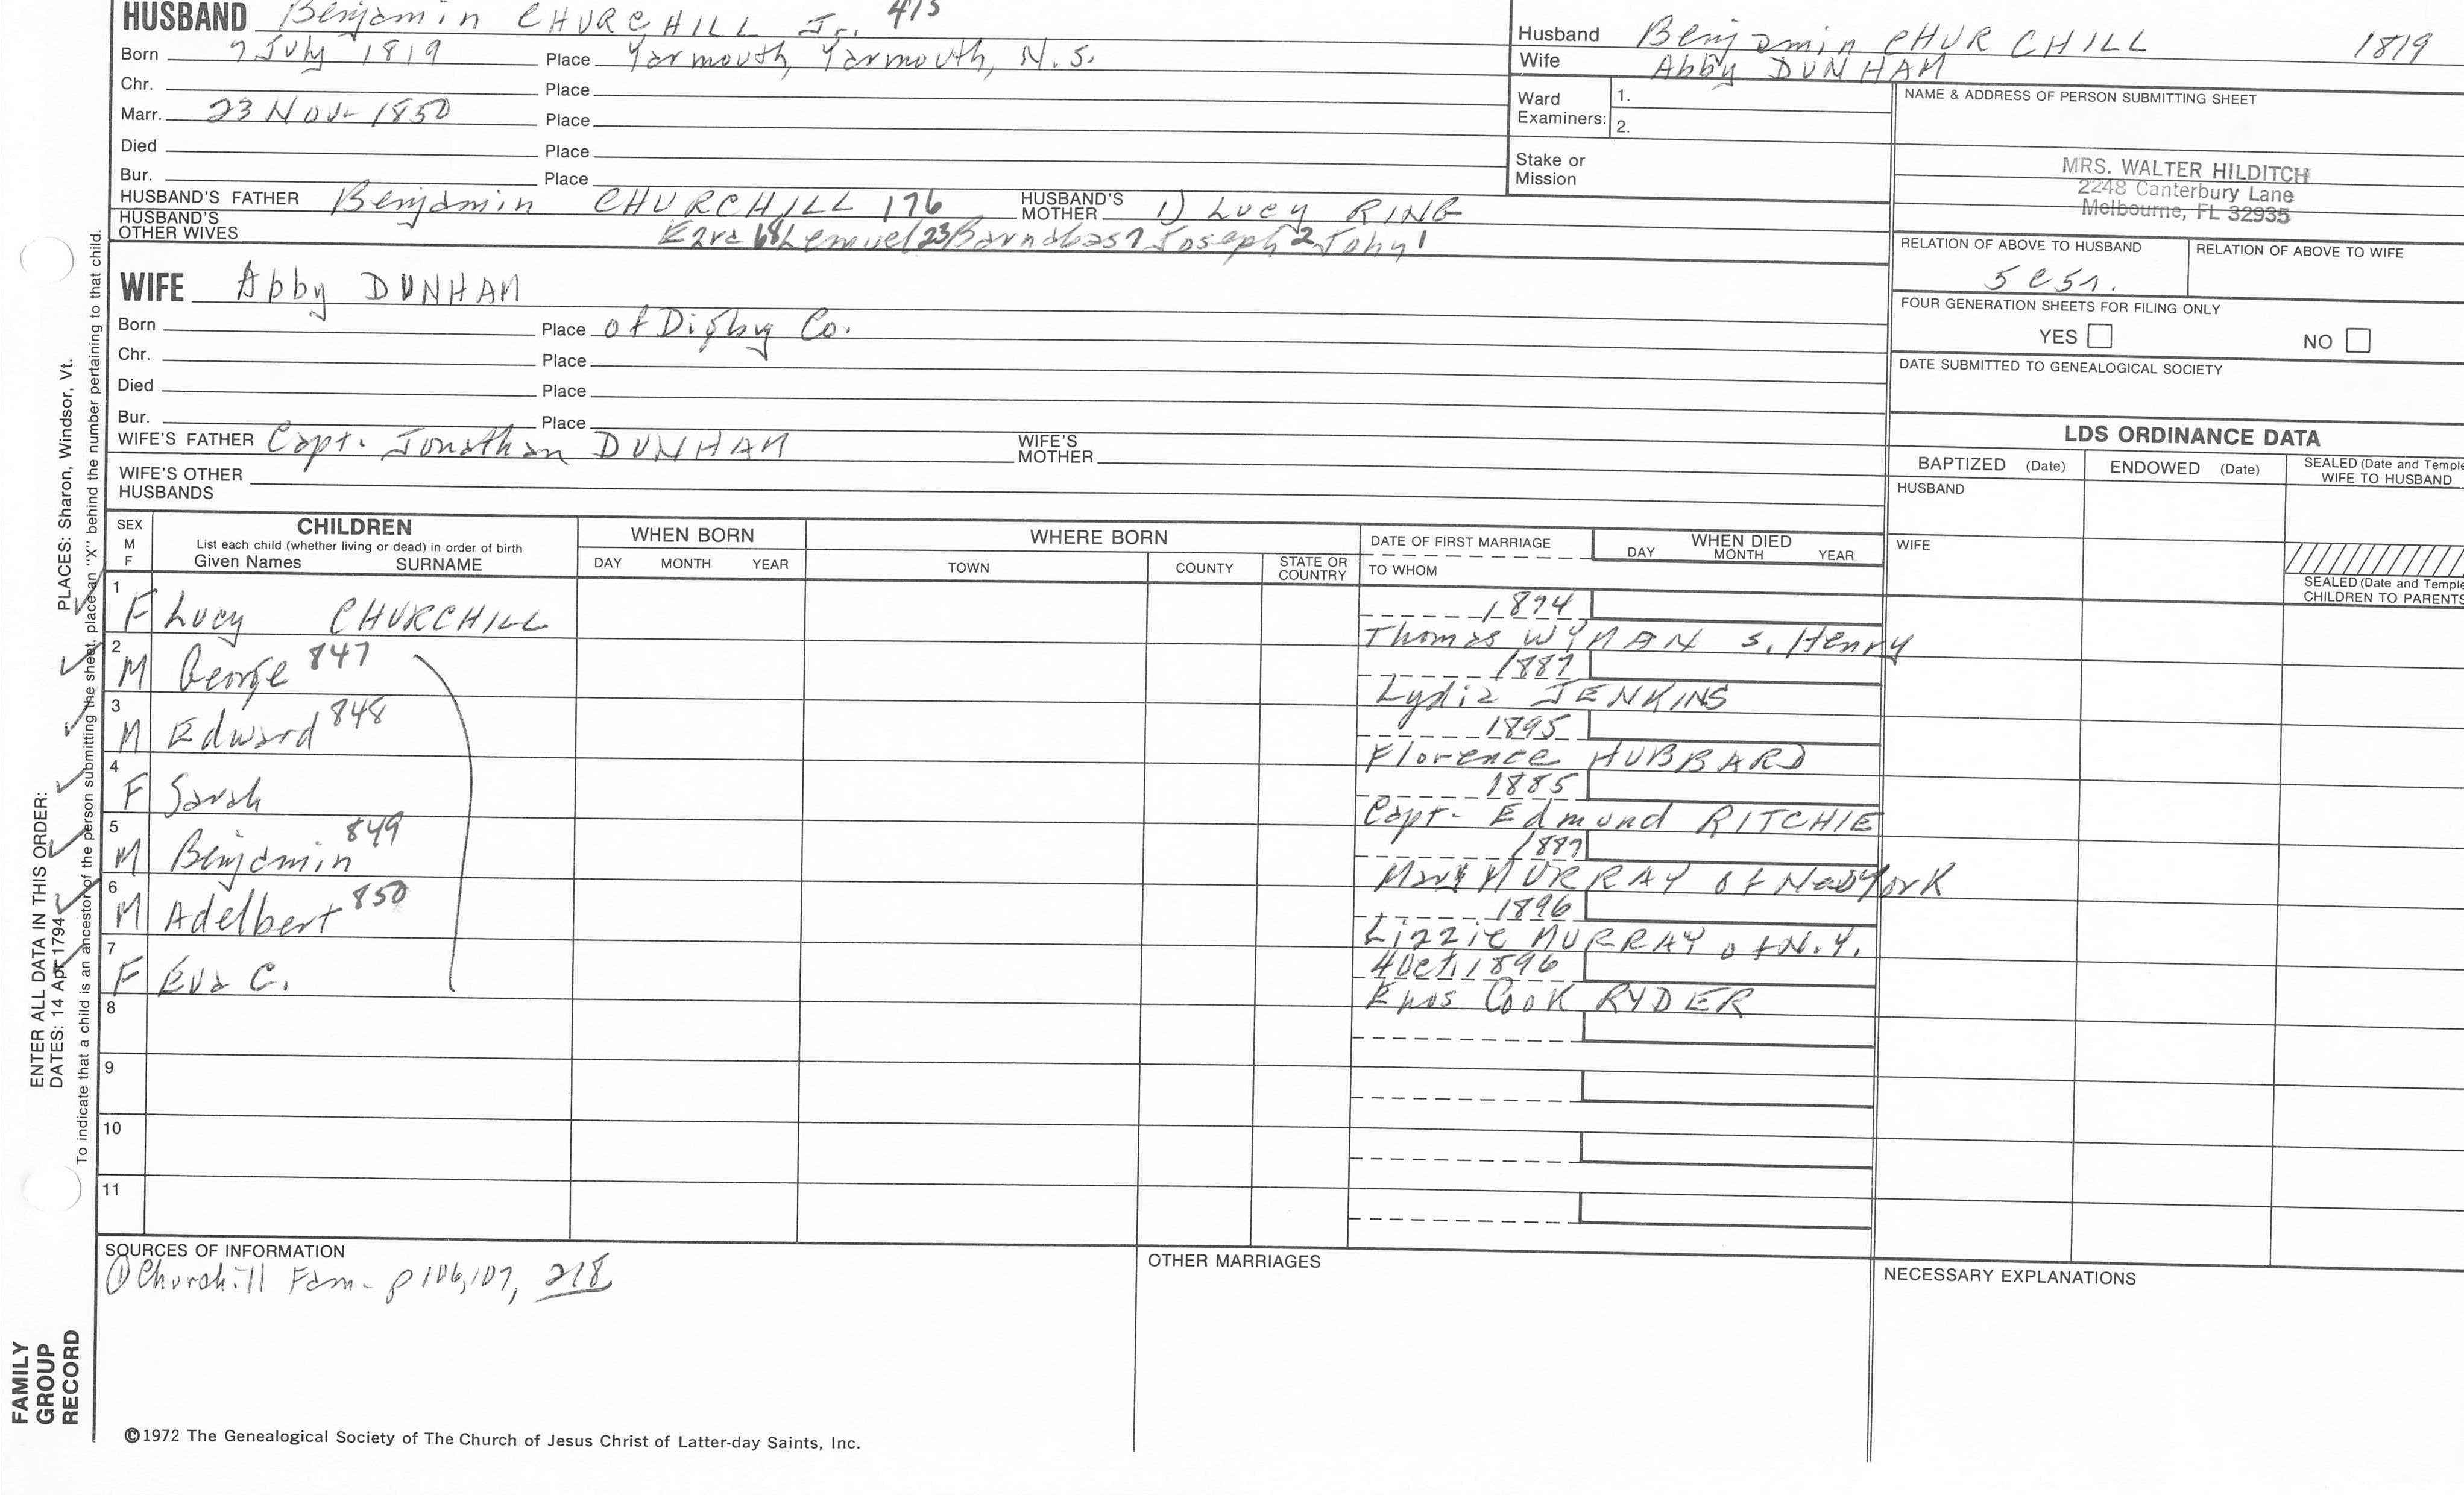 HUSBAND Benjamin CHURCHILL Jr. 415
Born 7 July 1819 Place Yarmouth, Yarmouth, N.S.
Chr. Place
Marr. 23 Nov- 1850 Place
Died Place
Bur. Place
HUSBAND'S FATHER Benjamin CHURCHILL 176 HUSBAND'S MOTHER 1) Lucy RING
HUSBAND'S OTHER WIVES Ezra 68 Lemuel 23 Barnabas 7 Joseph 2 John 1
Husband Benjamin CHURCHILL 1819
Wife Abby DUNHAM
Ward Examiners: 1.
2.
Stake or Mission
NAME & ADDRESS OF PERSON SUBMITTING SHEET
MRS. WALTER HILDITCH
2248 Canterbury Lane
Melbourne, FL 32935
RELATION OF ABOVE TO HUSBAND RELATION OF ABOVE TO WIFE
5c5r.
FOUR GENERATION SHEETS FOR FILING ONLY
YES NO
DATE SUBMITTED TO GENEALOGICAL SOCIETY
WIFE Abby DUNHAM
Born Place of Digby Co.
Chr. Place
Died Place
Bur. Place
WIFE'S FATHER Capt. Jonathan DUNHAM WIFE'S MOTHER
WIFE'S OTHER HUSBANDS
LDS ORDINANCE DATA
BAPTIZED (Date) ENDOWED (Date) SEALED (Date and Temple
WIFE TO HUSBAND
HUSBAND
WIFE
SEALED (Date and Temple
CHILDREN TO PARENTS
SEX M F
CHILDREN
List each child (whether living or dead) in order of birth
Given Names SURNAME
WHEN BORN
DAY MONTH YEAR
WHERE BORN
TOWN COUNTY STATE OR COUNTRY
DATE OF FIRST MARRIAGE
TO WHOM
WHEN DIED
DAY MONTH YEAR
1 F Lucy CHURCHILL 1874
Thomas WYMAN s. Henry
2 M George 847 1887
Lydia JENKINS
3 M Edward 848 1895
Florence HUBBARD
4 F Sarah 1885
Capt- Edmund RITCHIE
5 M Benjamin 849 1887
Mary MURRAY of New York
6 M Adelbert 850 1896
Lizzie MURRAY of N.Y.
7 F Eva C. 4 Oct. 1896
Enos Cook RYDER
8
9
10
11
SOURCES OF INFORMATION
① Churchill Fam- p 106,107, 218
OTHER MARRIAGES
NECESSARY EXPLANATIONS
©1972 The Genealogical Society of The Church of Jesus Christ of Latter-day Saints, Inc.
ENTER ALL DATA IN THIS ORDER:
DATES: 14 Apr 1794 PLACES: Sharon, Windsor, Vt.
To indicate that a child is an ancestor of the person submitting the sheet, place an "X" behind the number pertaining to that child.
FAMILY
GROUP
RECORD